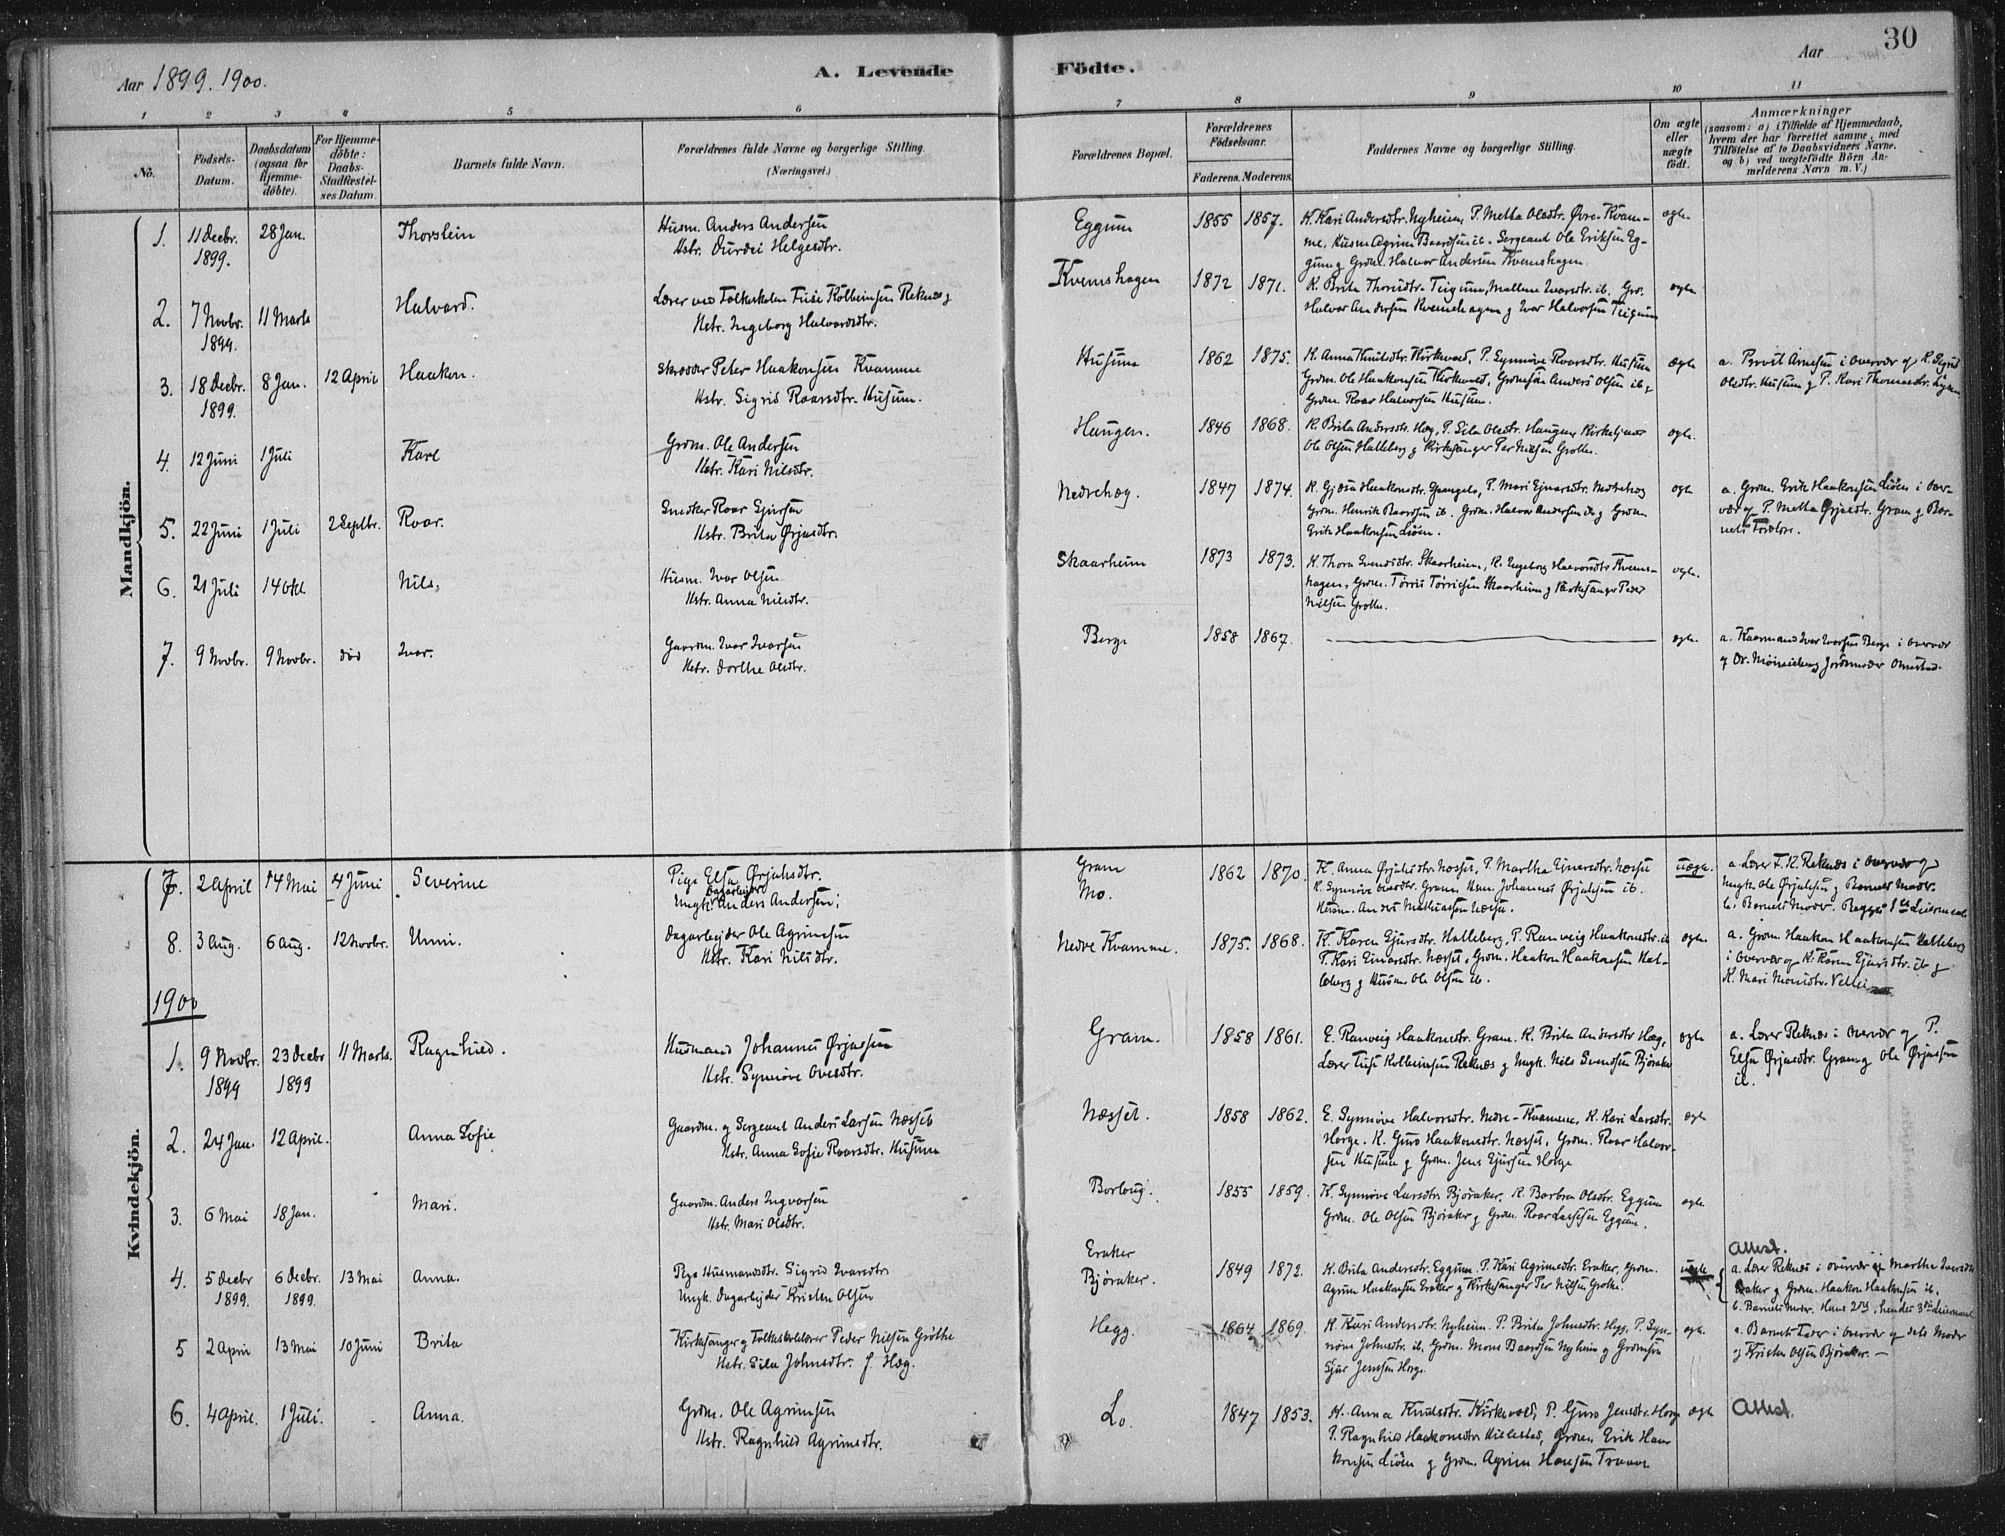 30
Aar 1899. 1900.
A. Levende Födte.
Aar
1 2 3 4 5 6 7 8 9 10 11
No.
Födsels-Datum.
Daabsdatum (ogsaa for Hjemmedöbte).
For Hjemmedöbte: Daabs-Stadfæstelses Datum.
Barnets fulde Navn.
Forældrenes fulde Navne og borgerlige Stilling. (Næringsvei.)
Forældrenes Bopæl.
Forældrenes Födselsaar.
Faderens. Moderens.
Faddernes Navne og borgerlige Stilling.
Om ægte eller uægte födt.
Anmærkninger
(saasom: a) i Tilfælde af Hjemmedaab, hvem der har forrettet samme, med Tilföielse af to Daabsvidners Navne. og b) ved uægtefödte Börn Anmelderens Navn m. V.)
Mandkjön.
1. 11 Decbr. 1899. 28 Jan. Thorstein
Husm. Anders Andersen
Hstr. Durdei Helgesdtr.
Eggum 1855 1857.
K. Kari Andersdtr. Nyheim, P. Metta Olsdtr. Øvre-Kvam-
me, Husm Agrim Baardsen ib. Sergeant Ole Eriksen Eg-
gum og Grdm. Halvor Andersen Kvemshagen
ægte
2. 7 Novbr. 1899. 11 Marts Halvard.
Lærer ved Folkeskolen Tusi Kolbeinsen Reknes og
Hstr. Ingeborg Halvordsdtr.
Kvemshagen 1872 1871.
Halvor Andersen Kvemshagen og Ivar Halvorsen Teigum
ægte
3. 18 Decbr. 1899. 8 Jan. 12 April Haakon.
Skræder Peter Haakonsen Kvamme
Hstr. Sigrid Roarsdtr. Husum.
Husum 1862 1875.
K. Anna Knutsdtr. Kirkevold, P. Synnøve Roarsdtr. Husum
Grdm. Ole Haakonsen Kirkevold, Grdmsøn Anders Olsen ib. og
Grdm. Roar Halvorsen Husum.
ægte
a. Provst Arnesen i Overvær af K. Sigrid
Olsdtr. Husum og P. Kari Thomasdtr.
4. 12 Juni 1 Juli Karl
Grdm. Ole Andersen
Hstr. Kari Nilsdtr.
Haugen. 1846 1868.
K. Brita Andersdtr. Hæg, P. Sila Olsdtr. Haugen, Kirketjener
Ole Olsen Halleberg og Kirkesanger Per Nilsen Grothe.
ægte.
5. 22 Juni 1 Juli 2 Septbr. Roar.
Snedker Roar Sjursen
Hstr. Brita Ørjasdtr.
Nedrehæg. 1847 1874.
Grdm. Henrik Baardsen ib. Grdm. Halvor Andersen ib. og Grdm
Erik Haakonsen Liøen.
ægte
a. Grdm. Erik Haakonsen Liøen i Over-
vær af P. Metta Ørjasdtr. Gram og Bar-
nets Forældre.
6. 21 Juli 14 Okt. Nils,
Husm. Ivar Olsen
Hstr. Anna Nilsdtr.
Skaarheim 1873 1873.
K. Thora Svendsdtr. Skaarheim, K. Ingeborg Halvorsdtr Kvems-
hagen, Grdm. Torris Torrisen Skaarheim og Kirkesanger Peder
Nilsen Grothe.
ægte.
7. 9 Novbr. 9 Novbr. død Ivar.
Gaardm. Ivar Ivarsen
Hstr. Dorthe Olsdtr.
Berge 1858 1867.
ægte.
a. Kaarmand Ivar Ivarsen Berge i Overvær
Kvindekjön.
7. 2 April 14 Mai 4 Juni Severine
Pige Elsa Ørjansdtr.
Dagarbeider
Ungk. Anders Andersen;
Gram
Mo.
1862 1870.
K. Anna Ørjansdtr. Næsset, P. Martha Einarsdtr. Næsset
K. Synnøve Ovesdtr. Gram, Husm. Johannes Ørjansen ib.
Husm. Anders Mathiassen Næsset.
uægte.
a. Lærer T. K. Reknes i Overvær af
Ungk. Ole Ørjansen og Barnets Moder.
b. Barnets Moder. Begges 1ste Leiermaal
8. 3 Aug. 6 Aug. 12 Novbr. Unni.
Dagarbejder Ole Agrimsen
Hstr. Kari Nilsdtr.
Nedre Kvamme. 1875. 1868.
K. Karen Sjursdtr. Halleberg, P. Ranveig Haakonsdtr. ib
P. Kari Einarsdtr. Næsset, Grdm. Haakon Haakonsen Hal-
leberg og Husm. Ole Olsen ib.
ægte
a. Grdm. Haakon Haakonsen Halleberg
i Overvær af K. Karen Sjursdtr. ib og
K. Mari Monsdtr. Vetlei
1900
1. 9 Novbr. 1899 23 Decbr 1899 11 Marts. Ragnhild.
Husmand Johannes Ørjassen
Hstr. Synnøve Ovesdtr.
Gram. 1858 1861.
E. Ranveig Haakonsdtr. Gram. K. Brita Andersdtr Hæg,
Lærer Tusi Kolbeinsen Reknes og Ungk. Nils Svendsen Bjøraker
ægte
a. Lærer Reknes i Overvær af P.
Elsa Ørjasdtr. Gram og Ole Ørjasen
ib.
2. 24 Jan. 12 April. Anna Sofie
Gaardm. og Sergeant Anders Larsen Næsset
Hstr. Anna Sofie Roarsdtr. Husum
Næsset. 1858 1862.
E. Synnøve Halvorsdtr. Nedre-Kvamme, K. Kari Larsdtr.
Horge. K. Guro Haakonsdtr. Næsset, Grdm. Roar Halvor-
sen Husum og Grdm. Jens Sjursen Horge
ægte
3. 6 Mai 18 Jan. Mari.
Gaardm. Anders Ingvarsen
Hstr. Mari Olsdtr.
Borlaug. 1855 1859.
K. Synnøve Larsdtr. Bjøraker, K. Barbra Olsdtr. Eggum
Grdm. Ole Olsen Bjøraker og Grdm. Roar Larsen Eggum.
ægte
4. 5 Decbr 1899. 6 Decbr. 1899. 13 Mai Anna.
Pige Husmandsdtr. Sigrid Ivarsdtr
Ungk. Dagarbejder Kristen Olsen
Eraker
Bjøraker.
1849 1872.
K. Brita Andersdtr. Eggum. P. Kari Agrimsdtr. Eraker, Grdm.
Agrim Haakonsen Eraker og Kirkesanger Per Nilsen Grothe.
uægte
Attest.
a. Lærer Reknes i overvær af Martha Iversdtr
Eraker og Grdm. Haakon Haakonsen ib.
b. Barnets Moder. Hans 2det, hendes 3die Leiermaal
5 2 April 13 Mai 10 Juni Brita
Kirkesanger og Folkeskolelærer Peder Nilsen Grøthe
Hstr. Sila Johnsdtr. f. Hæg.
Hegg. 1864 1869.
K. Kari Andersdtr. Nyheim. P. Brita Johnsdtr. Hegg, P. Syn-
nøve Johnsdtr. ib, Grdm. Mons Baardsen Nyheim og Grdmsøn
Sjur Jenssen Horge.
ægte.
a. Barnets Fader i Overvær af dets Moder
og Kristen Olsen Bjøraker. —
6. 4 April. 1 Juli. Anna.
Grdm. Ole Agrimsen
Hstr. Ragnhild Agrimsdtr.
Lo. 1847 1853.
K. Anna Knutsdtr. Kirkevold, P. Guro Jensdtr. Horge
konsen Liøen og Grdm. Agrim Hansen
ægte
Attest.